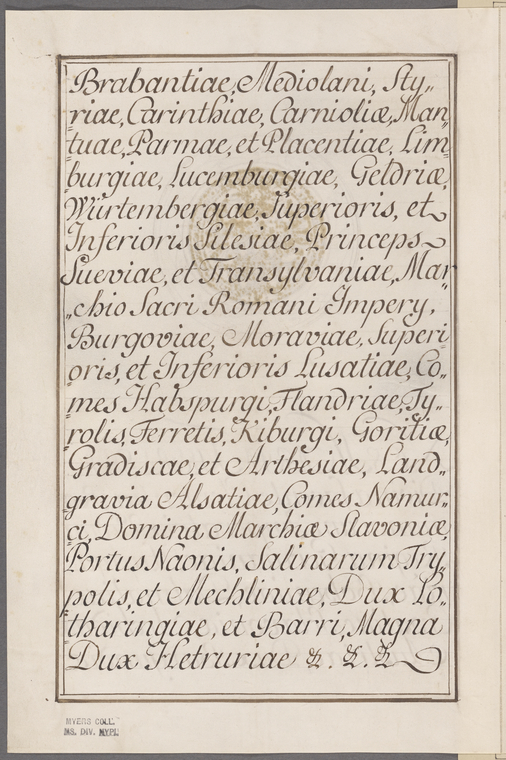 Brabantiae, Mediolani, Sty„
riae, Carinthiae, Carnioliæ, Man„
tuae, Parmae, et Placentiae, Lim„
burgiae, Lucemburgiae, Geldriæ,
Würtembergiae, Superioris, et
Inferioris Silesiae, Princeps
Sueviae, et Transylvaniae, Mar„
„chio Sacri Romani Impery,
Burgoviae, Moraviae, Superi„
oris, et Inferioris Lusatiae, Co„
mes Habspurgi, Flandriae, Ty„
rolis, Ferretis, Kiburgi, Goritiæ,
Gradiscae, et Arthesiae, Land„
gravia Alsatiae, Comes Namur„
ci, Domina Marchiæ Slavoniæ,
Portus Naonis, Salinarum Try„
polis, et Mechliniae, Dux Lo„
tharingiae, et Barri, Magna
Dux Hetruriae &. &. &
MYERS COLL.
MS. DIV. NYPL